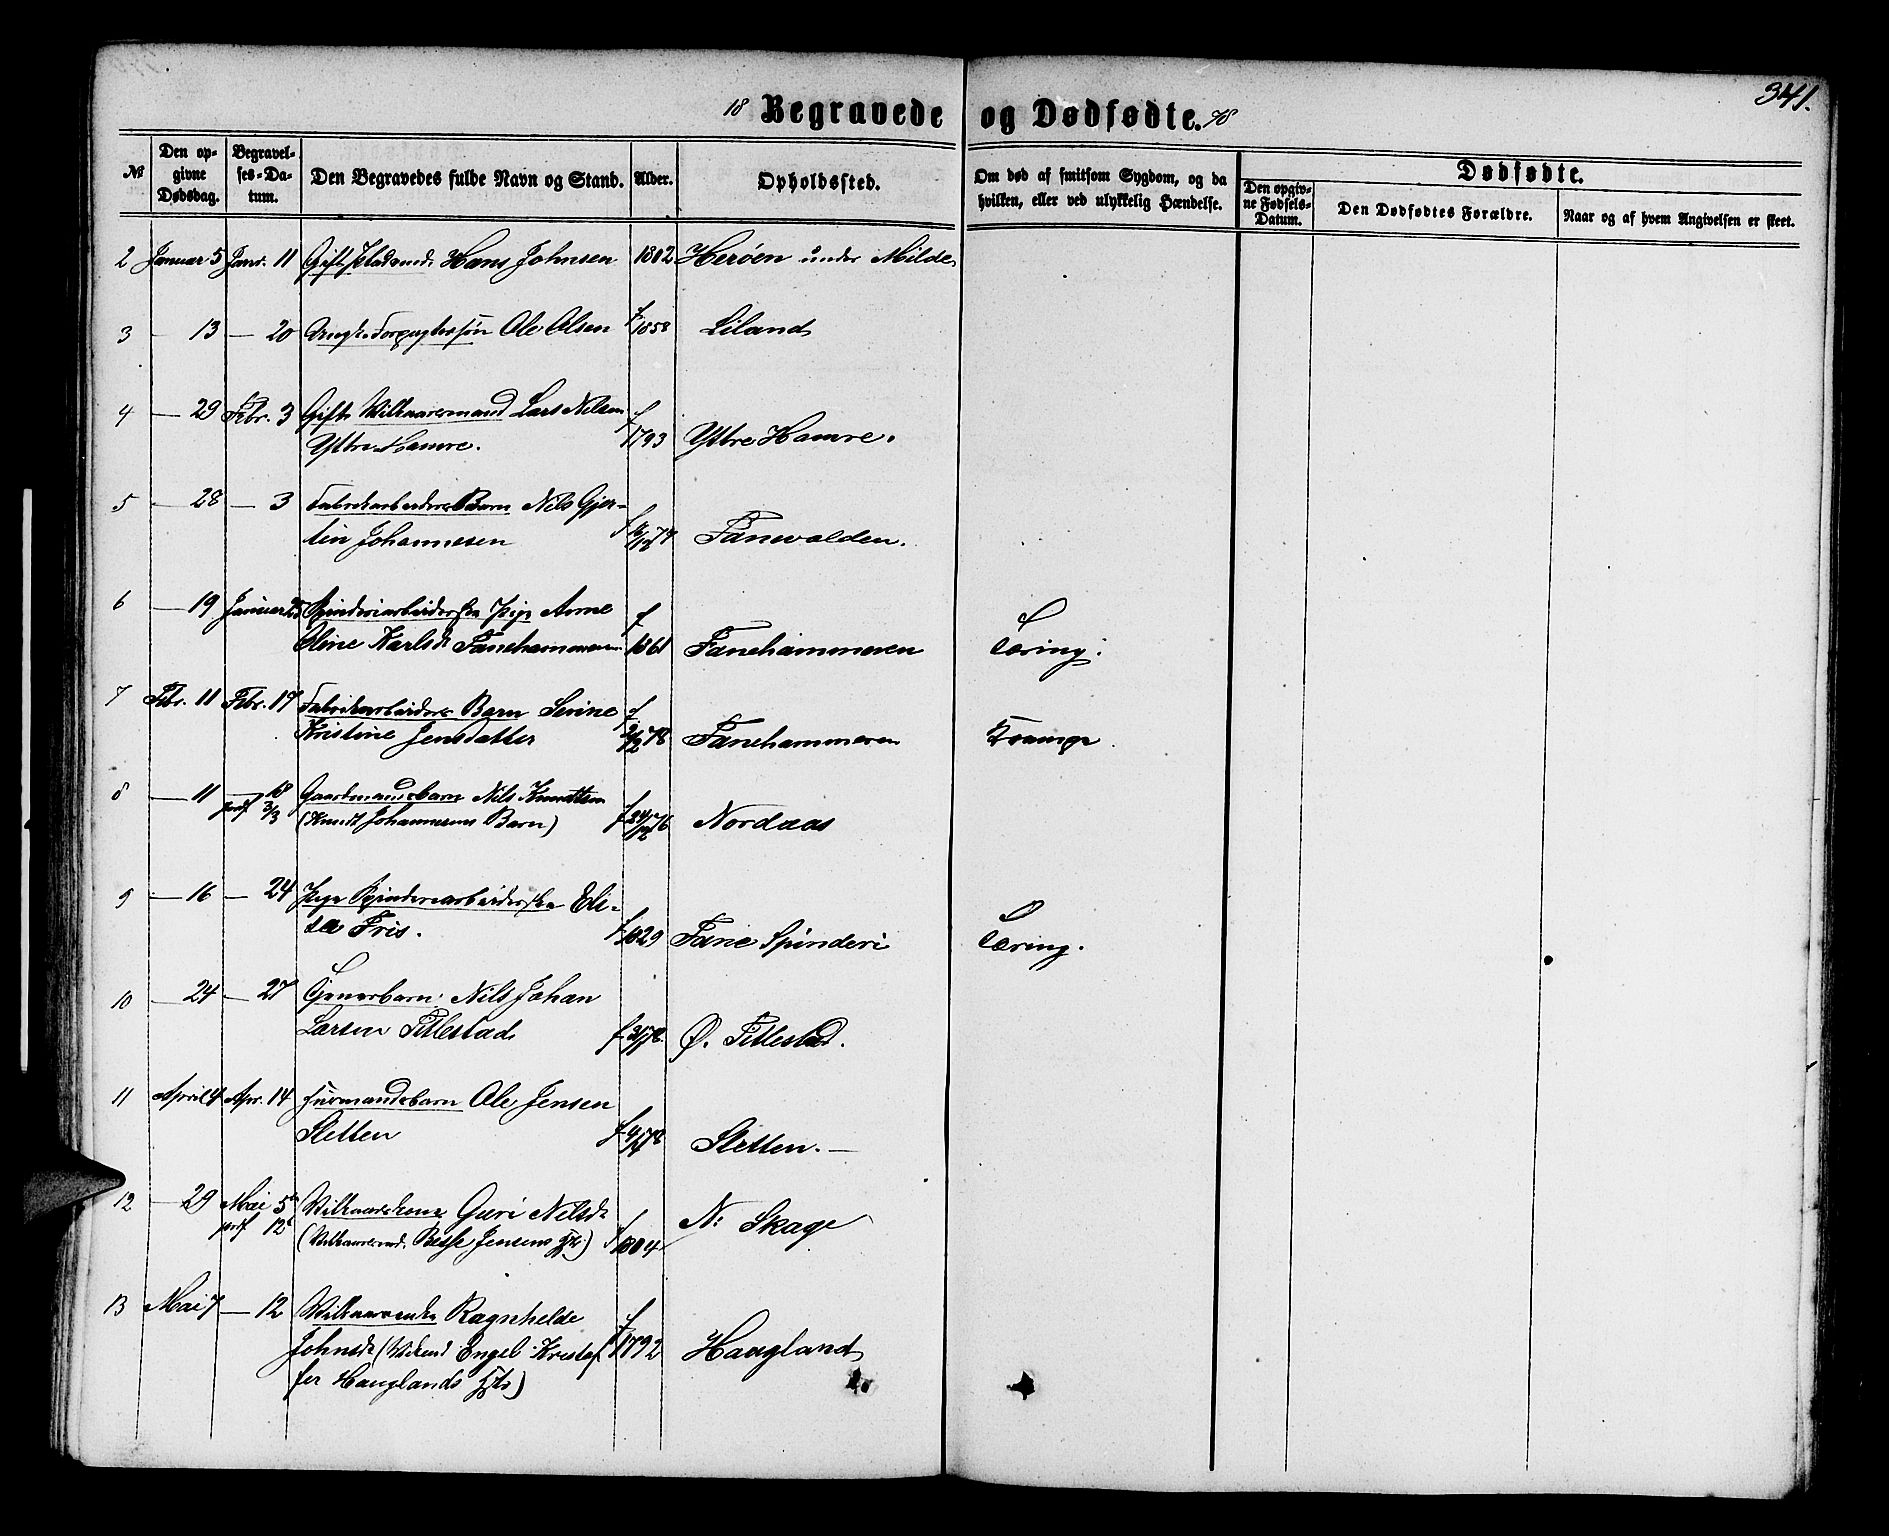 341.
18 Begravede og Dødfødte. 78
№ Den opgivne Dødsdag. Begravelses-Datum. Den Begravedes fulde Navn og Stand. Alder. Opholdssted. Om død af smitsom Sygdom, og da hvilken, eller ved ulykkelig Hændelse. Dødfødte.
Den opgivne Fødsels-Datum. Den Dødfødtes Forældre. Naar og af hvem Angivelsen er skeet.
2 Januar 5 Janr. 11 Gift Pladsmd. Hans Johnsen 1812 Herøen under Milde
3 — 13 — 20 Ole Olsen f 1858 Liland
4 — 29 Febr. 3 Gift Vilkaarsmand Lars Nilsen f
Yttre Hamre. 1793 Yttre Hamre.
5 — 28 — 3 Fabrikarbeiders Barn Nils Gjer-
tin Johannesen Fanevolden.
6 — 19 Januar 25 Spinderiarbeiderske Pige Anne f
Oline Karlsd. Fanehammeren 1861 Fanehammeren Tæring.
7 Febr. 11 Febr. 17 Fabrikarbeiders Barn Serine f
Kristine Jensdatter Fanehammeren Krampe
8 — 11 — 18 Gaardmandsbarn Nils Knudtsen
jordf 3/3 (Knudt Johannesens Barn) f 24/12 76 Nordaas
9 — 16 — 24 Pige Spinderiarbeiderske Eli-
sa Fris. f 1829 Fane Spinderi Tæring.
10 — 24 — 27 Tjenerbarn Nils Johan
Larsen Titlestad Ø. Titlestad.
11 April 4 Apr. 14 Husmandsbarn Ole Jensen
Sletten Sletten. —
12 — 29 Mai 5 Vilkaarskone Guri Nilsd.
jordf 12 (Vilkaarsmd. Besse Jensens H.) f 1804 N: Skage
13 Mai 7 — 12 Vilkaarsenke Ragnhilde f
Johnsd. (Engel Kristof- 1792 Haugland
fer Hauglands)